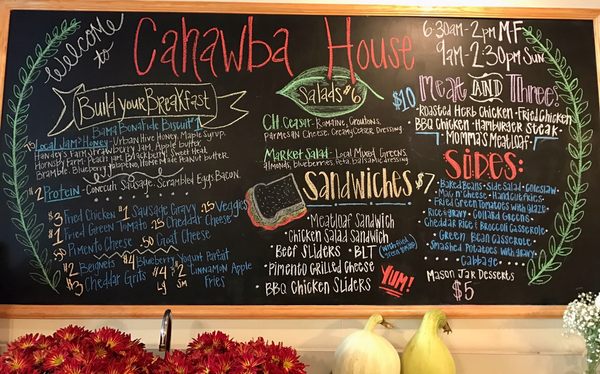 Welcome to
Cahawba House
6:30am-2pm M-F
9am-2:30pm Sun
Build your Breakfast
Bama Bonafide Biscuit $1
Local Jam & Honey - Urban Hive Honey, Maple Syrup,
Strawberry Jam, Apple butter
Peach Jam, Blackberry, Sweet Heat
Bramble, Blueberry Jalapeno, Homemade Peanut butter
$2 Protein - Conecuh Sausage - Scrambled Eggs Bacon
$3 Fried Chicken $1 Sausage Gravy .75 Veggies
$1 Fried Green Tomato .25 Cheddar Cheese
.50 Pimento Cheese .50 Goat Cheese
$2 Beignets $4 Blueberry Yogurt Parfait
$3 Cheddar Grits $4 Lg $2 Sm Cinnamon Apple Fries
Salads $6
CH Ceasar - Romaine, Croutons,
Parmesan Cheese, Creamy Ceaser Dressing
Market Salad - Local Mixed Greens,
almonds, Blueberries, Feta, balsamic dressing
Sandwiches $7
Meatloaf Sandwich
Chicken Salad Sandwich
Beef Sliders • BLT
Pimento Grilled Cheese
BBQ Chicken Sliders
YUM!
Meat and Three:
$10
Roasted Herb Chicken • Fried Chicken
BBQ Chicken • Hamburger Steak
Momma's Meatloaf
Sides:
Baked Beans • Side Salad • Coleslaw
Mac n' Cheese • Handcut Fries
Fried Green Tomatoes with glaze
Rice & gravy • Collard Greens
Cheddar Rice & Broccoli Casserole
Green Bean Casserole
Smashed Potatoes with gravy
Cabbage
Mason Jar Desserts
$5